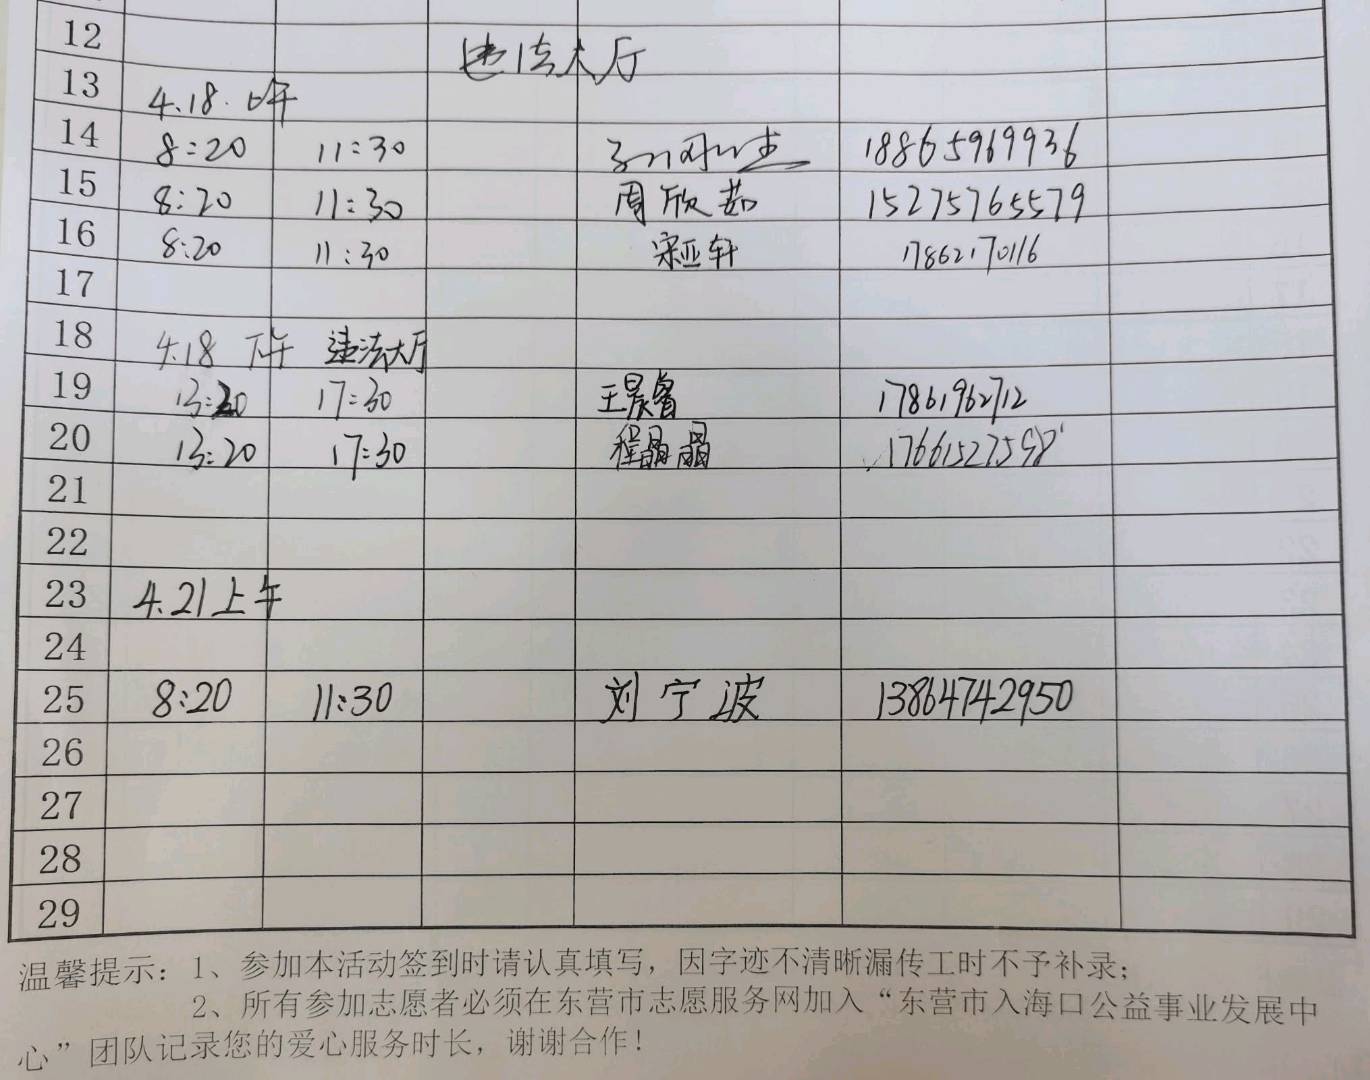 12
违法大厅
13 4.18.上午
14 8:20 11:30 18865969936
15 8:20 11:30 周欣茹 15275765579
16 8:20 11:30 宋亚轩 17862170116
17
18 4.18 下午 违法大厅
19 13:20 17:30 王晨睿 17861962712
20 13:20 17:30 程晶晶
21
22
23 4.21上午
24
25 8:20 11:30 刘宁波 13864742950
26
27
28
29
温馨提示：1、参加本活动签到时请认真填写，因字迹不清晰漏传工时不予补录；
2、所有参加志愿者必须在东营市志愿服务网加入“东营市入海口公益事业发展中
心”团队记录您的爱心服务时长，谢谢合作！